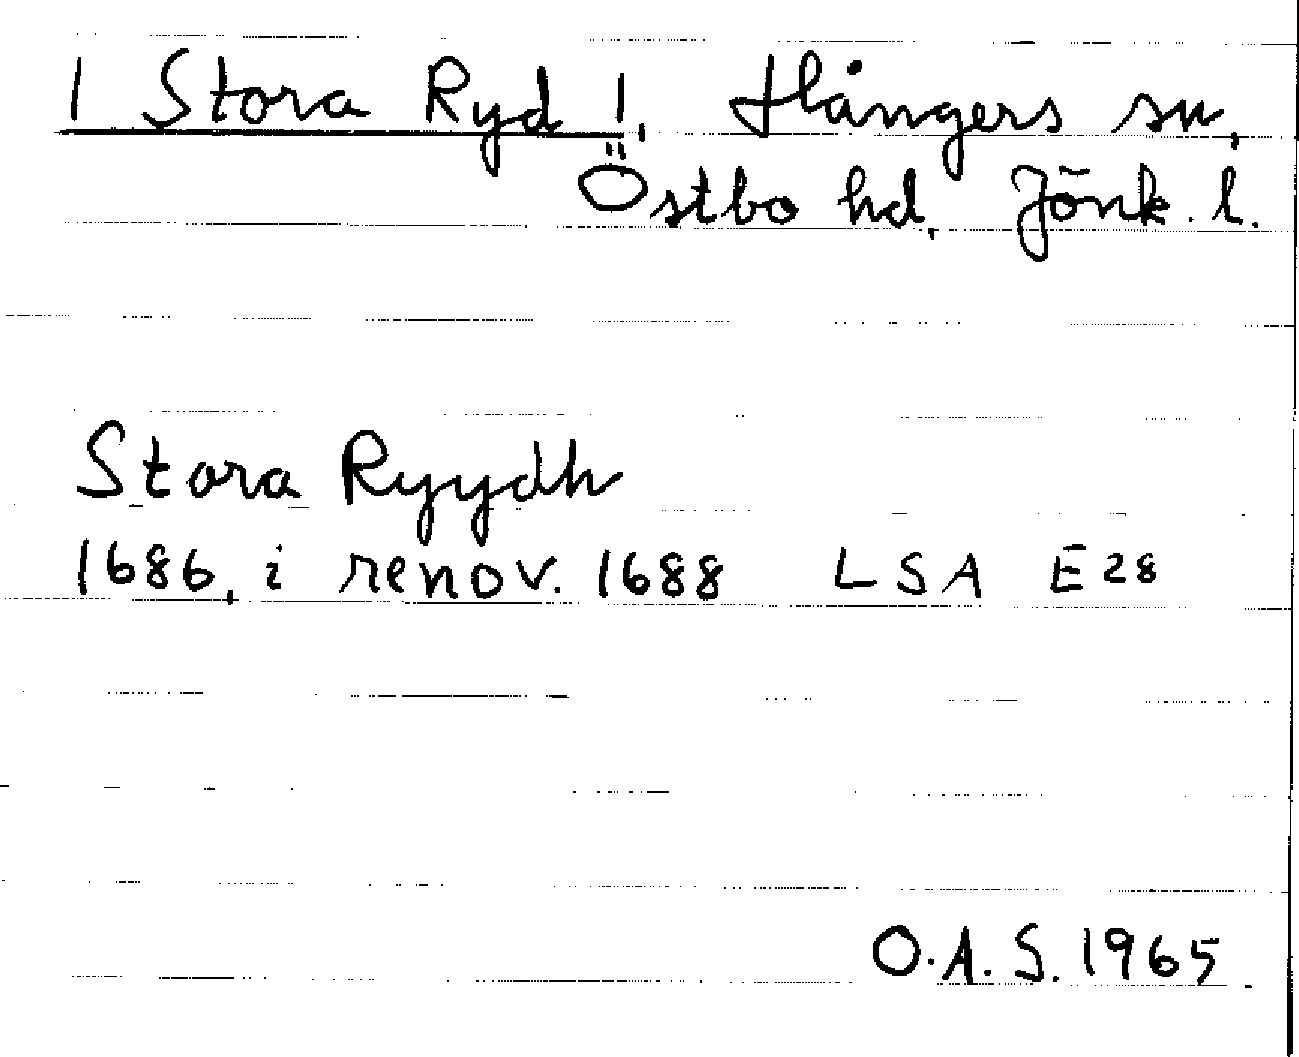 | Stora Ryd |, Hångers sn,
Östbo hd, Jönk. l.
Stora Ryydh
1686, i renov. 1688 LSA E 28
O.A.S. 1965